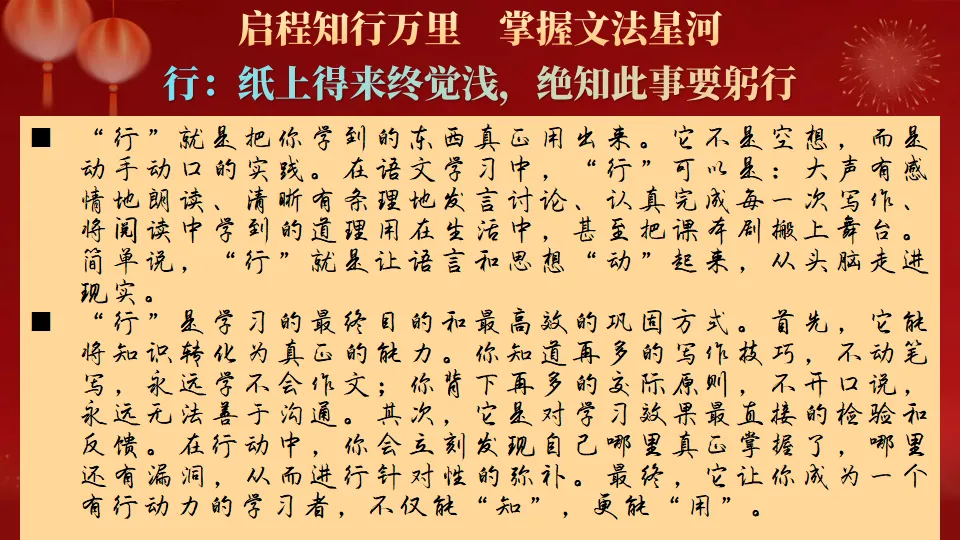 启程知行万里　掌握文法星河
行：纸上得来终觉浅，绝知此事要躬行
■ “行”就是把你学到的东西真正用出来。它不是空想，而是
动手动口的实践。在语文学习中，“行”可以是：大声有感
情地朗读、清晰有条理地发言讨论、认真完成每一次写作、
将阅读中学到的道理用在生活中，甚至把课本剧搬上舞台。
简单说，“行”就是让语言和思想“动”起来，从头脑走进
现实。
■ “行”是学习的最终目的和最高效的巩固方式。首先，它能
将知识转化为真正的能力。你知道再多的写作技巧，不动笔
写，永远学不会作文；你背下再多的交际原则，不开口说，
永远无法善于沟通。其次，它是对学习效果最直接的检验和
反馈。在行动中，你会立刻发现自己哪里真正掌握了，哪里
还有漏洞，从而进行针对性的弥补。最终，它让你成为一个
有行动力的学习者，不仅能“知”，更能“用”。